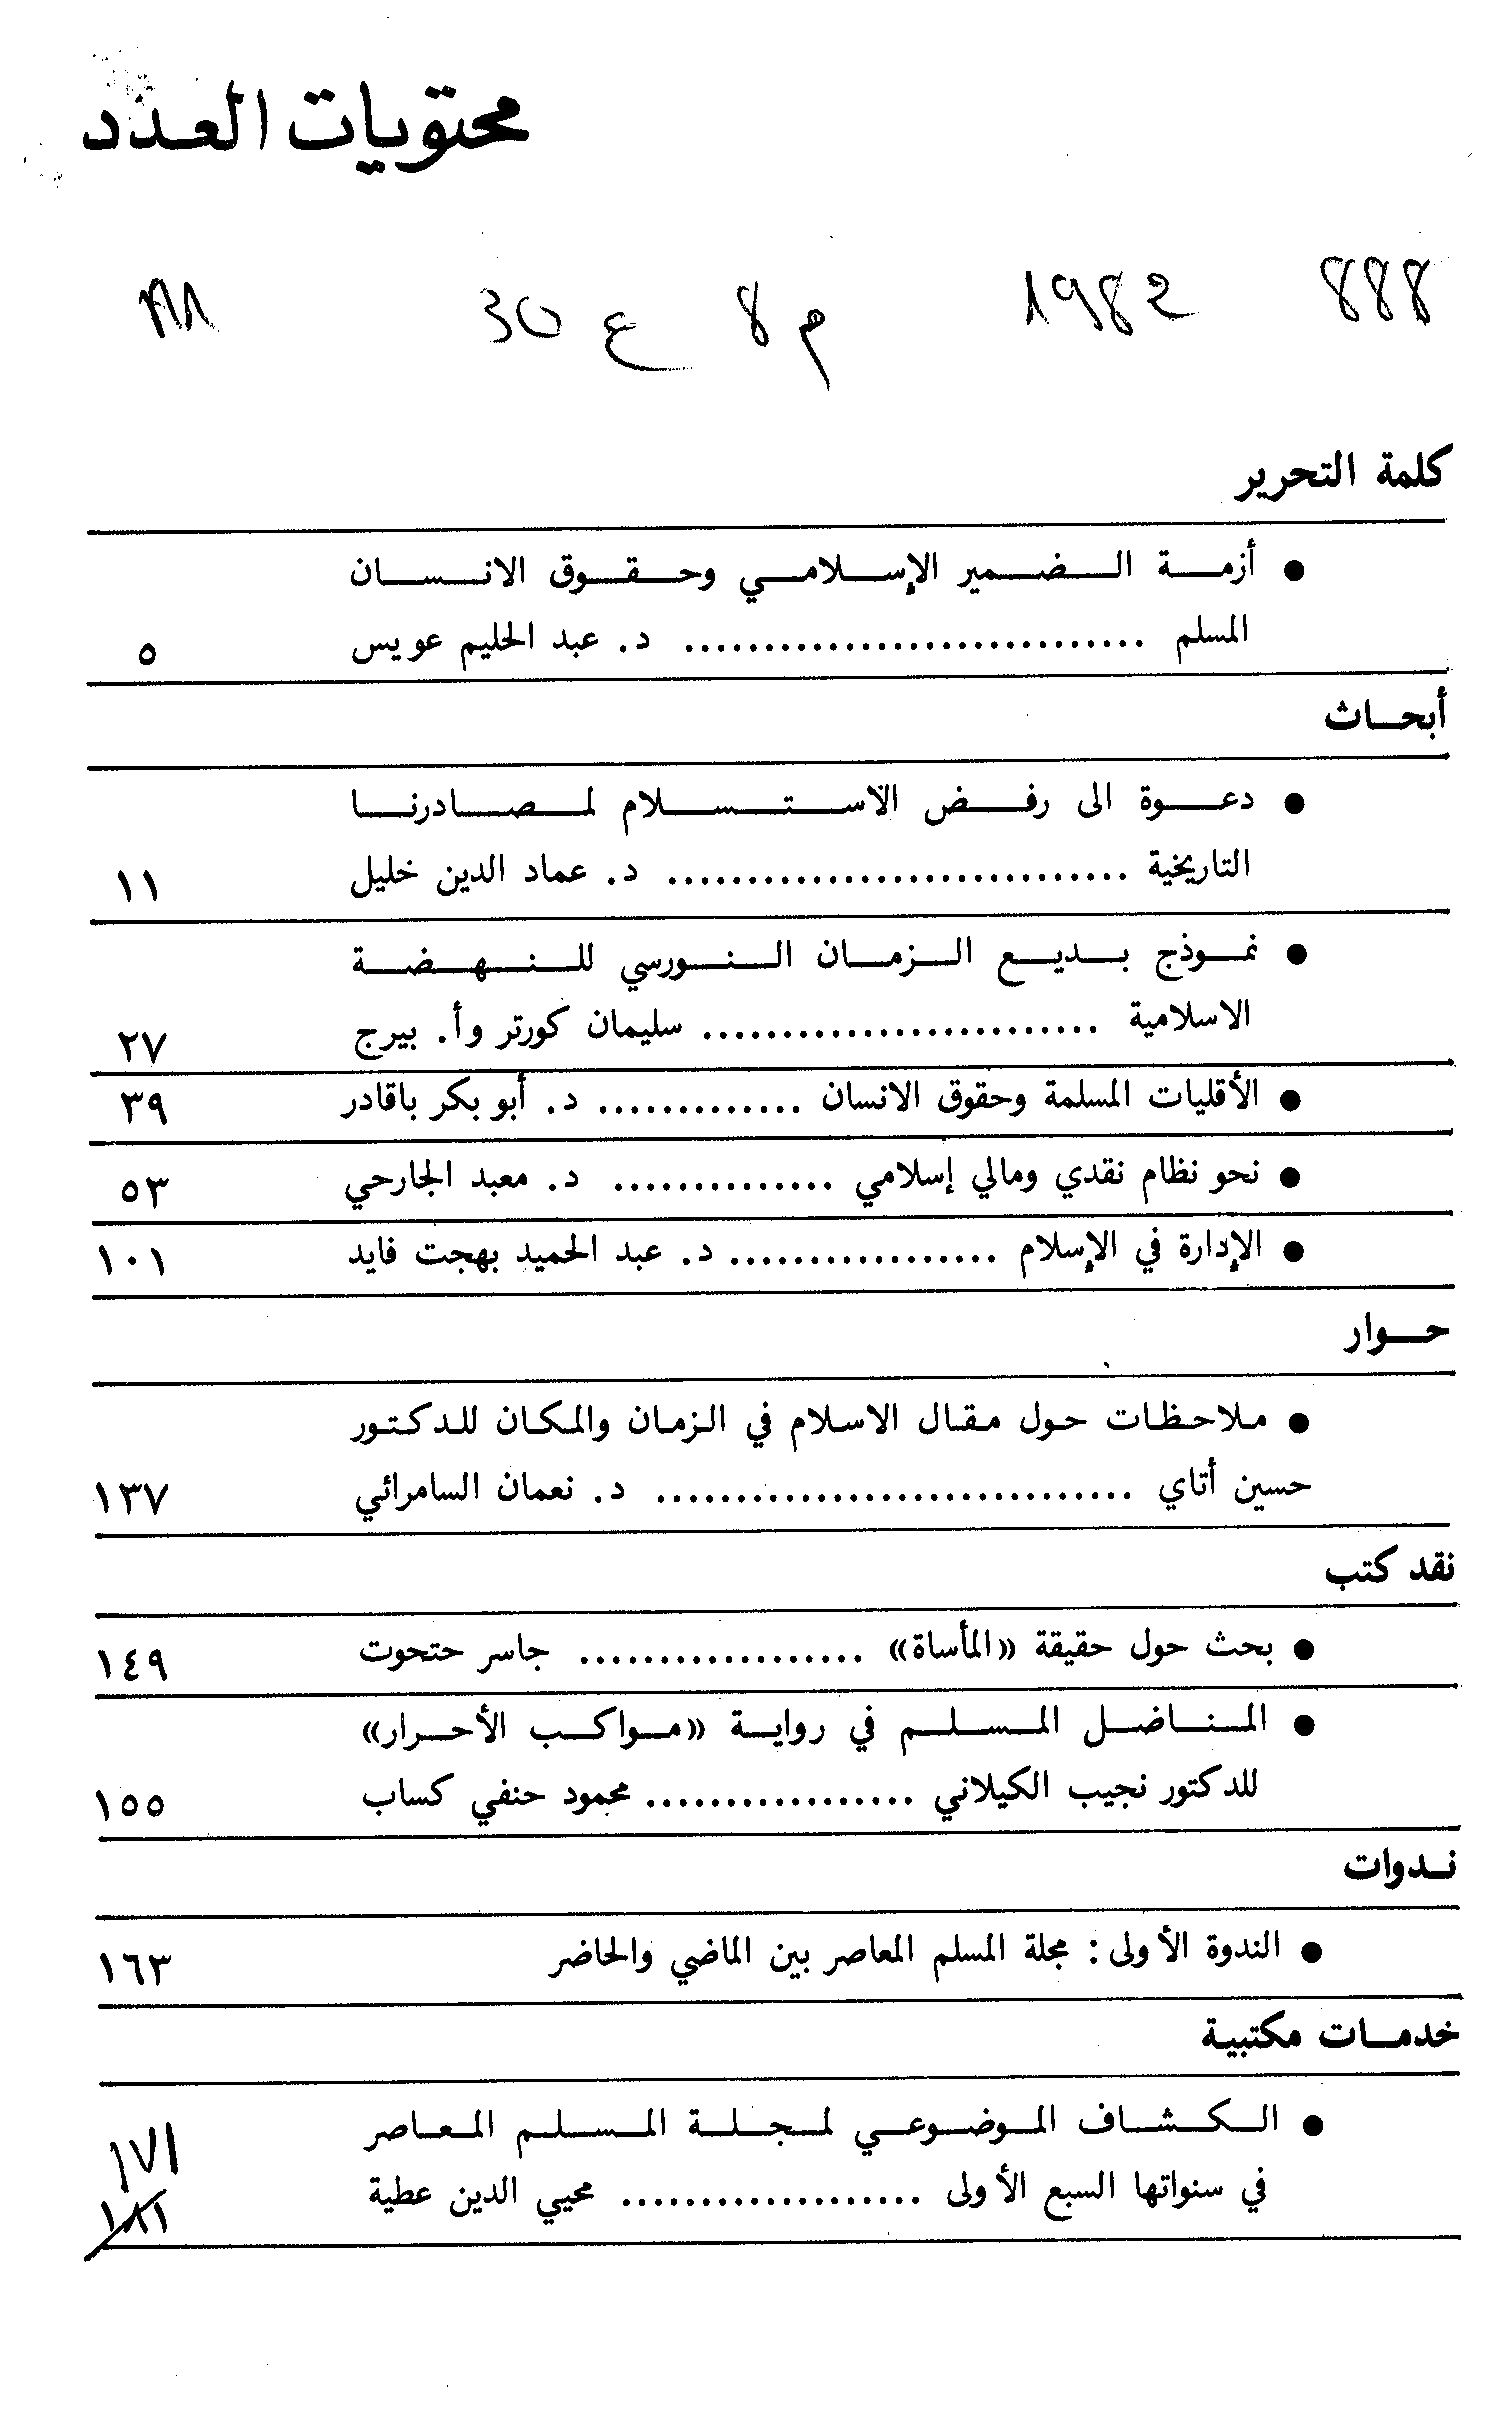 محتويات العدد
888 1982 م 8 ع 30
كلمة التحرير
● أزمة الضمير الإسلامي وحقوق الانسان
المسلم ............................. د. عبد الحليم عويس ٥
أبحاث
● دعوة الى رفض الاستسلام لمصادرنا
التاريخية ............................. د. عماد الدين خليل ١١
● نموذج بديع الزمان النورسي للنهضة
الاسلامية ......................... سليمان كورتر وأ. بيرج ٢٧
● الأقليات المسلمة وحقوق الانسان ............. د. أبو بكر باقادر ٣٩
● نحو نظام نقدي ومالي إسلامي .............. د. معبد الجارحي ٥٣
● الإدارة في الإسلام ................. د. عبد الحميد بهجت فايد ١٠١
حوار
● ملاحظات حول مقال الاسلام في الزمان والمكان للدكتور
حسين أتاي .............................. د. نعمان السامرائي ١٣٧
نقد كتب
● بحث حول حقيقة «المأساة» .................. جاسر حتحوت ١٤٩
● المناضل المسلم في رواية «مواكب الأحرار»
للدكتور نجيب الكيلاني ................. محمود حنفي كساب ١٥٥
ندوات
● الندوة الأولى: مجلة المسلم المعاصر بين الماضي والحاضر ١٦٣
خدمات مكتبية
● الكشاف الموضوعي لمجلة المسلم المعاصر ١٧١
في سنواتها السبع الأولى ................... محيي الدين عطية ١٨١